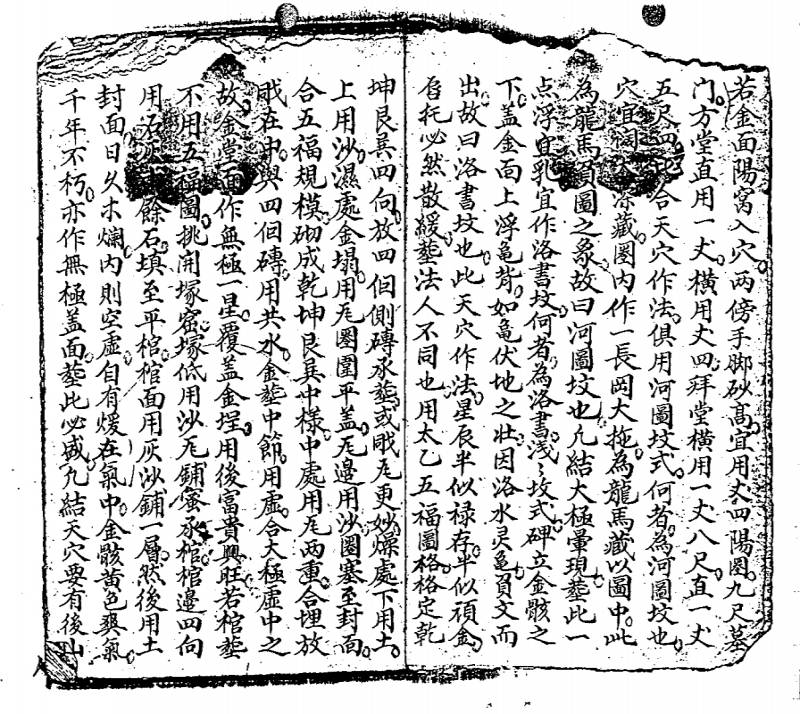 若金面陽窩入穴两傍手脚砂髙宜用丈四陽圏九尺墓
门方堂直用一丈横用丈四拜堂横用一丈八尺直一丈
五尺四合天穴作法俱用河圖坟式何者為河圖坟也
穴宜闊深藏圏内作一長岡大拖為龍馬藏以圖中此
為龍馬負圖之象故曰河圖坟也凢結大極暈現塟此一
点浮宜乳宜作洛書坟何者為洛書浅〻坟式碑立金骸之
下盖金面上浮亀背如亀伏地之壮因洛水灵亀負文而
出故曰洛書坟也此天穴作法星辰半似禄存半似頑金
必然散緩塟法人不同也用太乙五福圖格格定乾
坤艮巽四向放四個側磚承塟或戝瓦更妙燥處下用土
上用沙濕處金塌用瓦圏圍平盖瓦邉用沙圏塞至封面
合五福規模砌成乾坤艮巽中樣中處用瓦两重合埋放
戝在中與四個磚用共水金塟中節用虚合大極虚中之
故金堂面作無極一星覆盖金埕用後富貴興旺若棺塟
不用五福圖挑開塚窟塚低用沙瓦鋪蜜承棺棺邉四向
用石灰餘石填至平棺棺面用灰沙鋪一層然後用土
封面日久木爛内則空虚自有煖在氣中金骸黄色爽氣
千年不朽亦作無極盖面塟此必盛凢結天穴要有後山